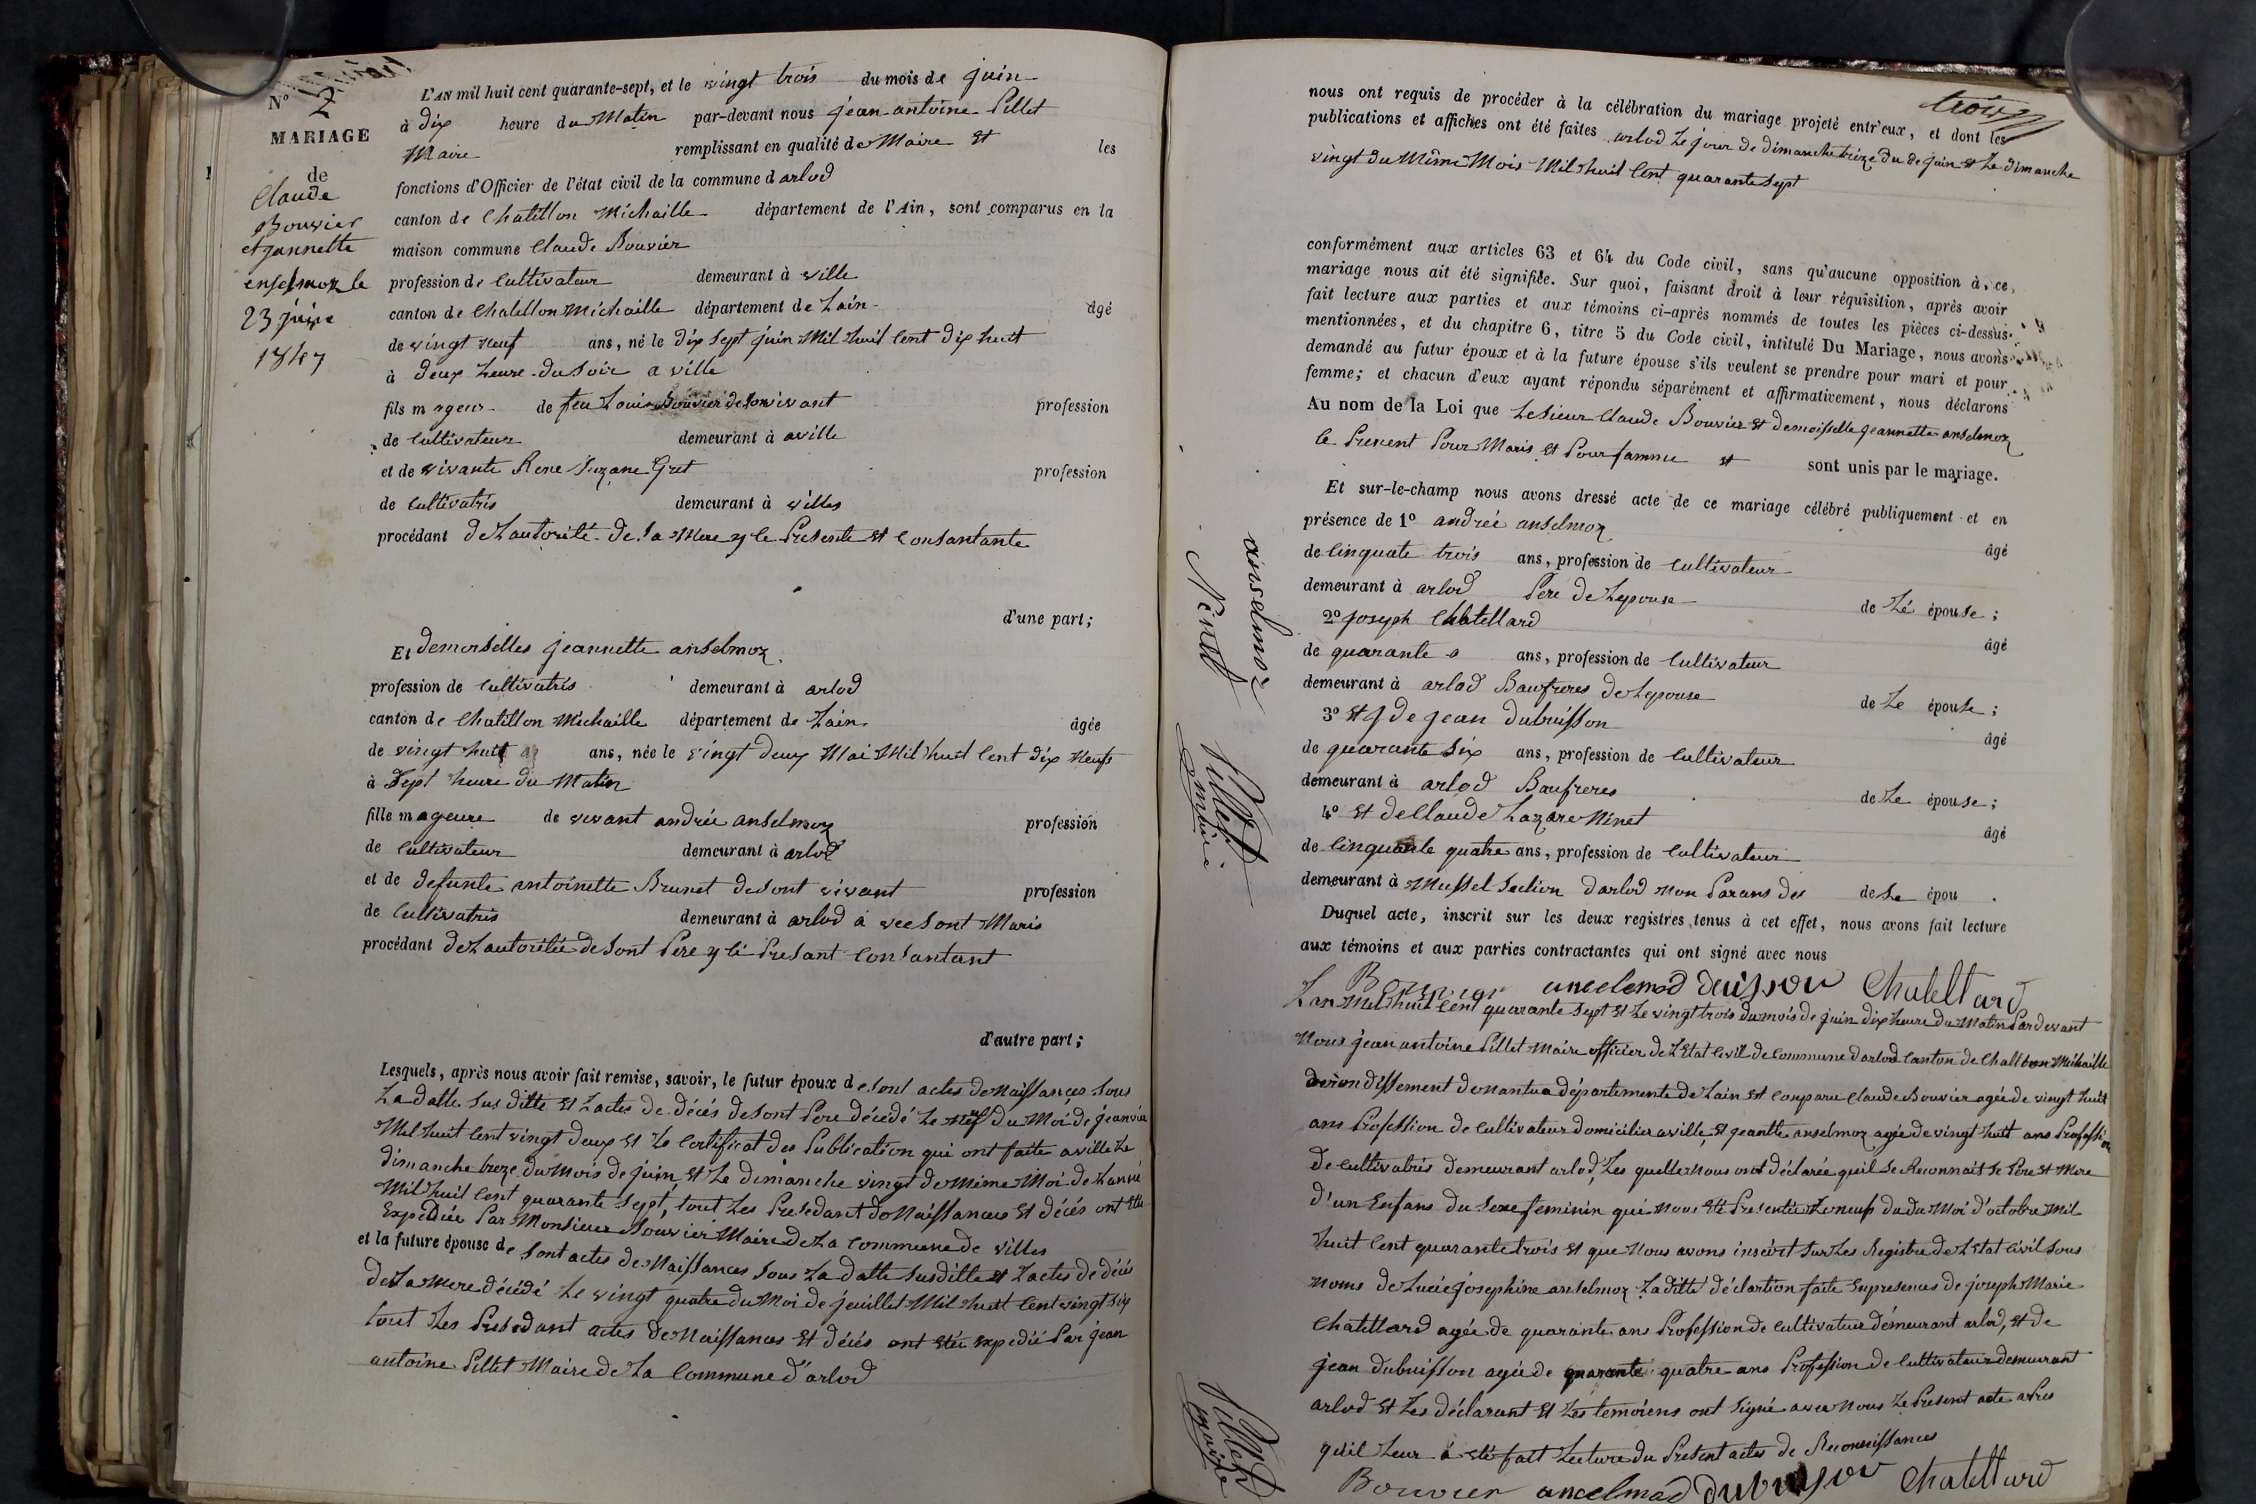 N° 2
MARIAGE
de
Claude
Bouvier
et jannette
enselmoz le
23 juin
1847
L'AN mil huit cent quarante-sept, et le vingt trois du mois de juin
à dix heure du Matin par-devant nous jean antoine Pillet
Maire remplissant en qualité de Maire et les
fonctions d'Officier de l'état civil de la commune d arlod
canton de Chatillon Michaille département de l'Ain, sont comparus en la
maison commune Claude Bouvier
profession de Cultivateur demeurant à ville
canton de Chatillon Michaille département de Lain âgé
de vingt neuf ans, né le dix sept juin Mil huit Cent dix huit
à deux heure du Soir a ville
fils mageur de feu Louis Bouvier de son vivant profession
de Cultivateur demeurant à aville
et de vivante Rene Suzane Gret profession
de Cultivatris demeurant à villes
procédant de Lautorité de Sa Mere y le Presente et Consantante
d'une part;
Et demoiselles jeannette anselmoz
profession de Cultivatris demeurant à arlod
canton de Chatillon Michaille département de Lain âgée
de vingt huit ans, née le vingt deux Mai Mil huit Cent dix Neufs
à Sept heure du Matin
fille mageure de vivant andrée anselmoz profession
de Cultivateur demeurant à arlod
et de defunte antoinette Brunet de Sont vivant profession
de Cultivatris demeurant à arlod a vec Sont Maris
procédant de Lautoritée de Sont Pere y li Presant Consantant
d'autre part;
Lesquels, après nous avoir fait remise, savoir, le futur époux de Sont actes de Naissances Sous
La datte Sus ditte et Lactes de décés de Sont Pere décédé Le neuf du Moi de jeanvier
Mil huit Cent vingt deux et Le Certificat des Publication qui ont faite aville Le
dimanche treze du Mois de juin et Le dimanche vingt de Mêime Moi de Lanné
Mil huit Cent quarante Sept, tout Les Presedant de Naissances et décés ont etée
Expediée Par Monsieur Bouvier Maire de La Commune de villes
et la future épouse de Sont actes de Naissances Sous La datte Susditte et Lactes de décés
de La Mere décédé Le vingt quatre du Moi de jeuillet Mil huit Cent vingt Six
tout Les Presedant actes de Naissances et décés ont etée expedié Par jean
antoine Pillet Maire de La Commune d'arlod
trois
nous ont requis de procéder à la célébration du mariage projeté entr'eux, et dont les
publications et affiches ont été faites arlod Le jour de dimanche treize du de juin et Le dimanche
vingt du Même Mois Mil huit Cent quarante Sept
conformément aux articles 63 et 64 du Code civil, sans qu'aucune opposition à ce
mariage nous ait été signifiée. Sur quoi, faisant droit à leur réquisition, après avoir
fait lecture aux parties et aux témoins ci-après nommés de toutes les pièces ci-dessus
mentionnées, et du chapitre 6, titre 5 du Code civil, intitulé Du Mariage, nous avons
demandé au futur époux et à la future épouse s'ils veulent se prendre pour mari et pour
femme; et chacun d'eux ayant répondu séparément et affirmativement, nous déclarons
Au nom de la Loi que Le Sieur Claude Bouvier et demoisselle jeannette anselmoz
Ce Prenent Pour Maris et Pour famme et sont unis par le mariage.
Et sur-le-champ nous avons dressé acte de ce mariage célébré publiquement et en
présence de 1° andrée anselmoz âgé
de Cinquate trois ans, profession de Cultivateur
demeurant à arlod Pere de Lepouse de Lé épouse;
2° joseph Chatellard âgé
de quarante ans, profession de Cultivateur
demeurant à arlod Baufreres de Lepouse de Le épouse;
3° et de jean dubuisson âgé
de quarante Six ans, profession de Cultivateur
demeurant à arlod Baufreres de Le épouse;
4° et de Claude Lazare Ninet âgé
de Cinquante quatre ans, profession de Cultivateur
demeurant à Mussel Section darlod non Parans des de Le épou
Duquel acte, inscrit sur les deux registres tenus à cet effet, nous avons fait lecture
aux témoins et aux parties contractantes qui ont signé avec nous
Bouvier anselmod Chatellard
anselmoz
Ninet
Pillet
maire
Lan Mil huit Cent quarante Sept et Le vingt trois du mois de juin dix heure du Matin Pardevant
Nous jean antoine Pillet Maire officier de LEtat Civil de Commune darlod Canton de Chatillon Michaille
arrondissement de nantua départemente de Lain est Comparu Claude Bouvier agée de vingt huit
ans Profession de Cultivateur domicilier aville et jeantte anselmoz agée de vingt huit ans Profession
de Cultivatris demeurant arlod, Les quelle nous ont déclarée quil Se Reconnait Le Pere et Mere
d'un Enfans du Sexe feminin qui nous eté Presentée Le neuf du du Moi d'octobre Mil
huit Cent quarante trois et que Nous avons inscrit Sur Les Registre de Letat Civil Sous
noms de Lucie josephine anselmoz La ditte déclartion faite enpresences de joseph Marie
Chatellard agée de quarante ans Profession de Cultivateur démeurant arlod, et de
jean dubuisson agée de quarante quatre ans Profession de Cultivateur demeurant
arlod et Les déclarant et Les temoiens ont Signé avec Nous Le Present acte aPres
quil Leur a eté fait Lecture du Present actes de Reconnissances
Bouvier ancelmod dubuison Chatellard
Pillet
maire